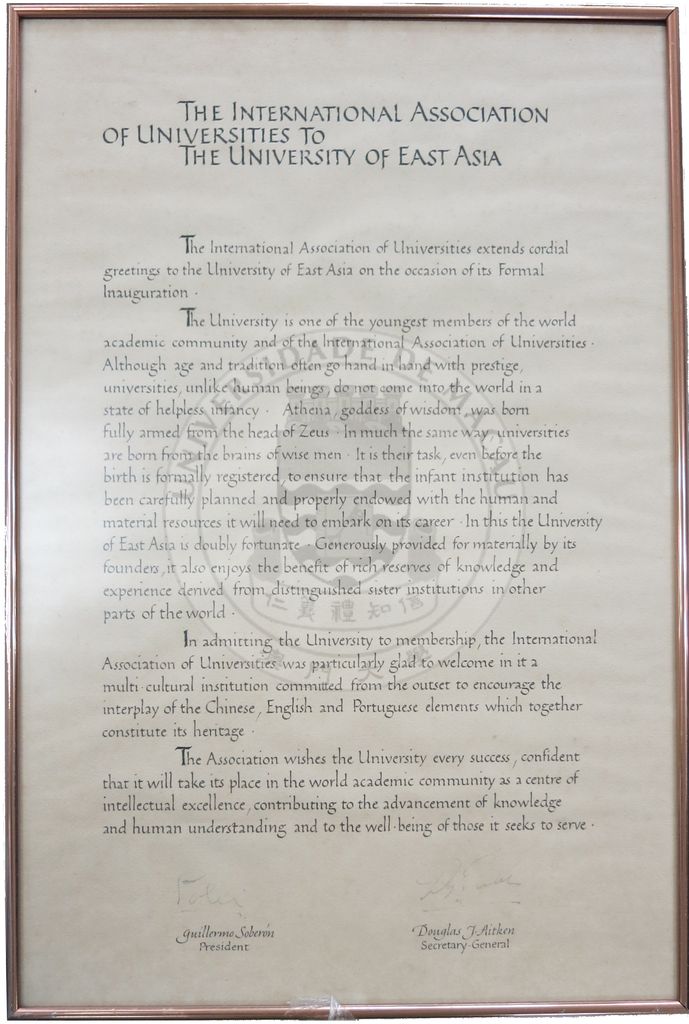 THE INTERNATIONAL ASSOCIATION
OF UNIVERSITIES TO
THE UNIVERSITY OF EAST ASIA
The International Association of Universities extends cordial
greetings to the University of East Asia on the occasion of its Formal
Inauguration ·
The University is one of the youngest members of the world
academic community and of the International Association of Universities ·
Although age and tradition often go hand in hand with prestige,
universities, unlike human beings, do not come into the world in a
state of helpless infancy · Athena, goddess of wisdom, was born
fully armed from the head of Zeus · In much the same way, universities
are born from the brains of wise men · It is their task, even before the
birth is formally registered, to ensure that the infant institution has
been carefully planned and properly endowed with the human and
material resources it will need to embark on its career · In this the University
of East Asia is doubly fortunate · Generously provided for materially by its
founders, it also enjoys the benefit of rich reserves of knowledge and
experience derived from distinguished sister institutions in other
parts of the world ·
In admitting the University to membership, the International
Association of Universities was particularly glad to welcome in it a
multi-cultural institution committed from the outset to encourage the
interplay of the Chinese, English and Portuguese elements which together
constitute its heritage ·
The Association wishes the University every success, confident
that it will take its place in the world academic community as a centre of
intellectual excellence, contributing to the advancement of knowledge
and human understanding and to the well-being of those it seeks to serve ·
Guillermo Soberón
President
Douglas J. Aitken
Secretary-General
UNIVERSIDADE DE MACAU
仁義禮知信
澳門大學